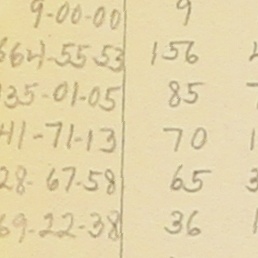 9-00-00 9
664-55-53 156
135-01-05 85
41-71-13 70
28-67-58 65
69-22-38 36